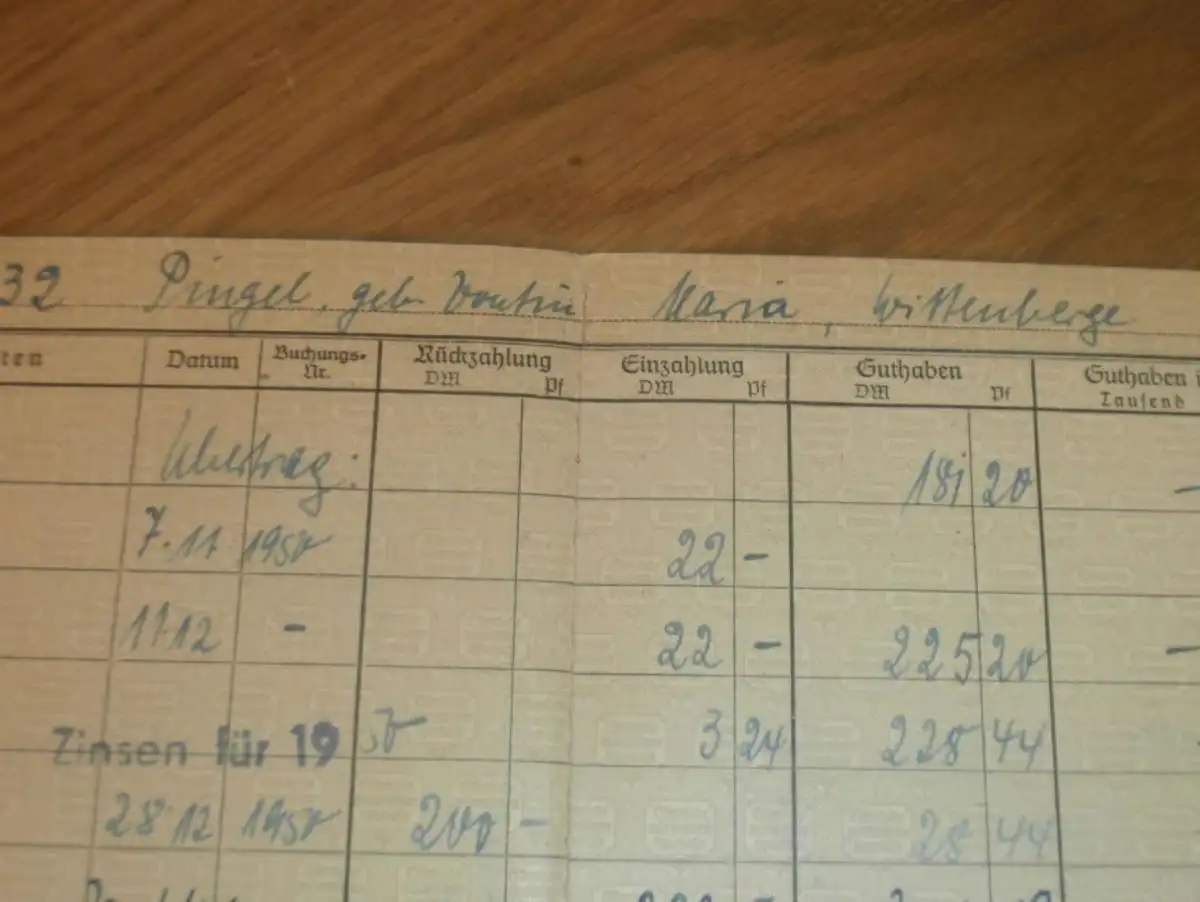 32 Pingel, geb. Maria, Wittenberge
ten Datum Buchungs-Nr. Rückzahlung DM Pf Einzahlung DM Pf Guthaben DM Pf Guthaben i Tausend
Übertrag: 181 20 –
7.11 1950 22 –
11.12 – 22 – 225 20 –
Zinsen für 19 50 3 24 228 44
28.12 1950 200 – 28 44